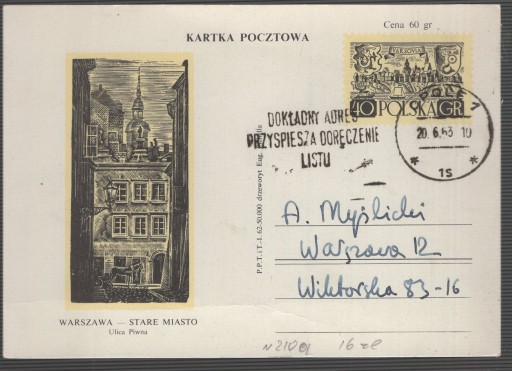 Cena 60 gr
KARTKA POCZTOWA
WARSZAWA
40 POLSKA GR
DOKŁADNY ADRES
PRZYSPIESZA DORĘCZENIE
LISTU
OPOLE 1
20.6.63 10
* 1s *
P.P.T. i T.-I. 62-50.000 drzeworyt Eug.
A. Myślicki
Warszawa 12
Wiktorska 83-16
WARSZAWA — STARE MIASTO
Ulica Piwna
16 zł